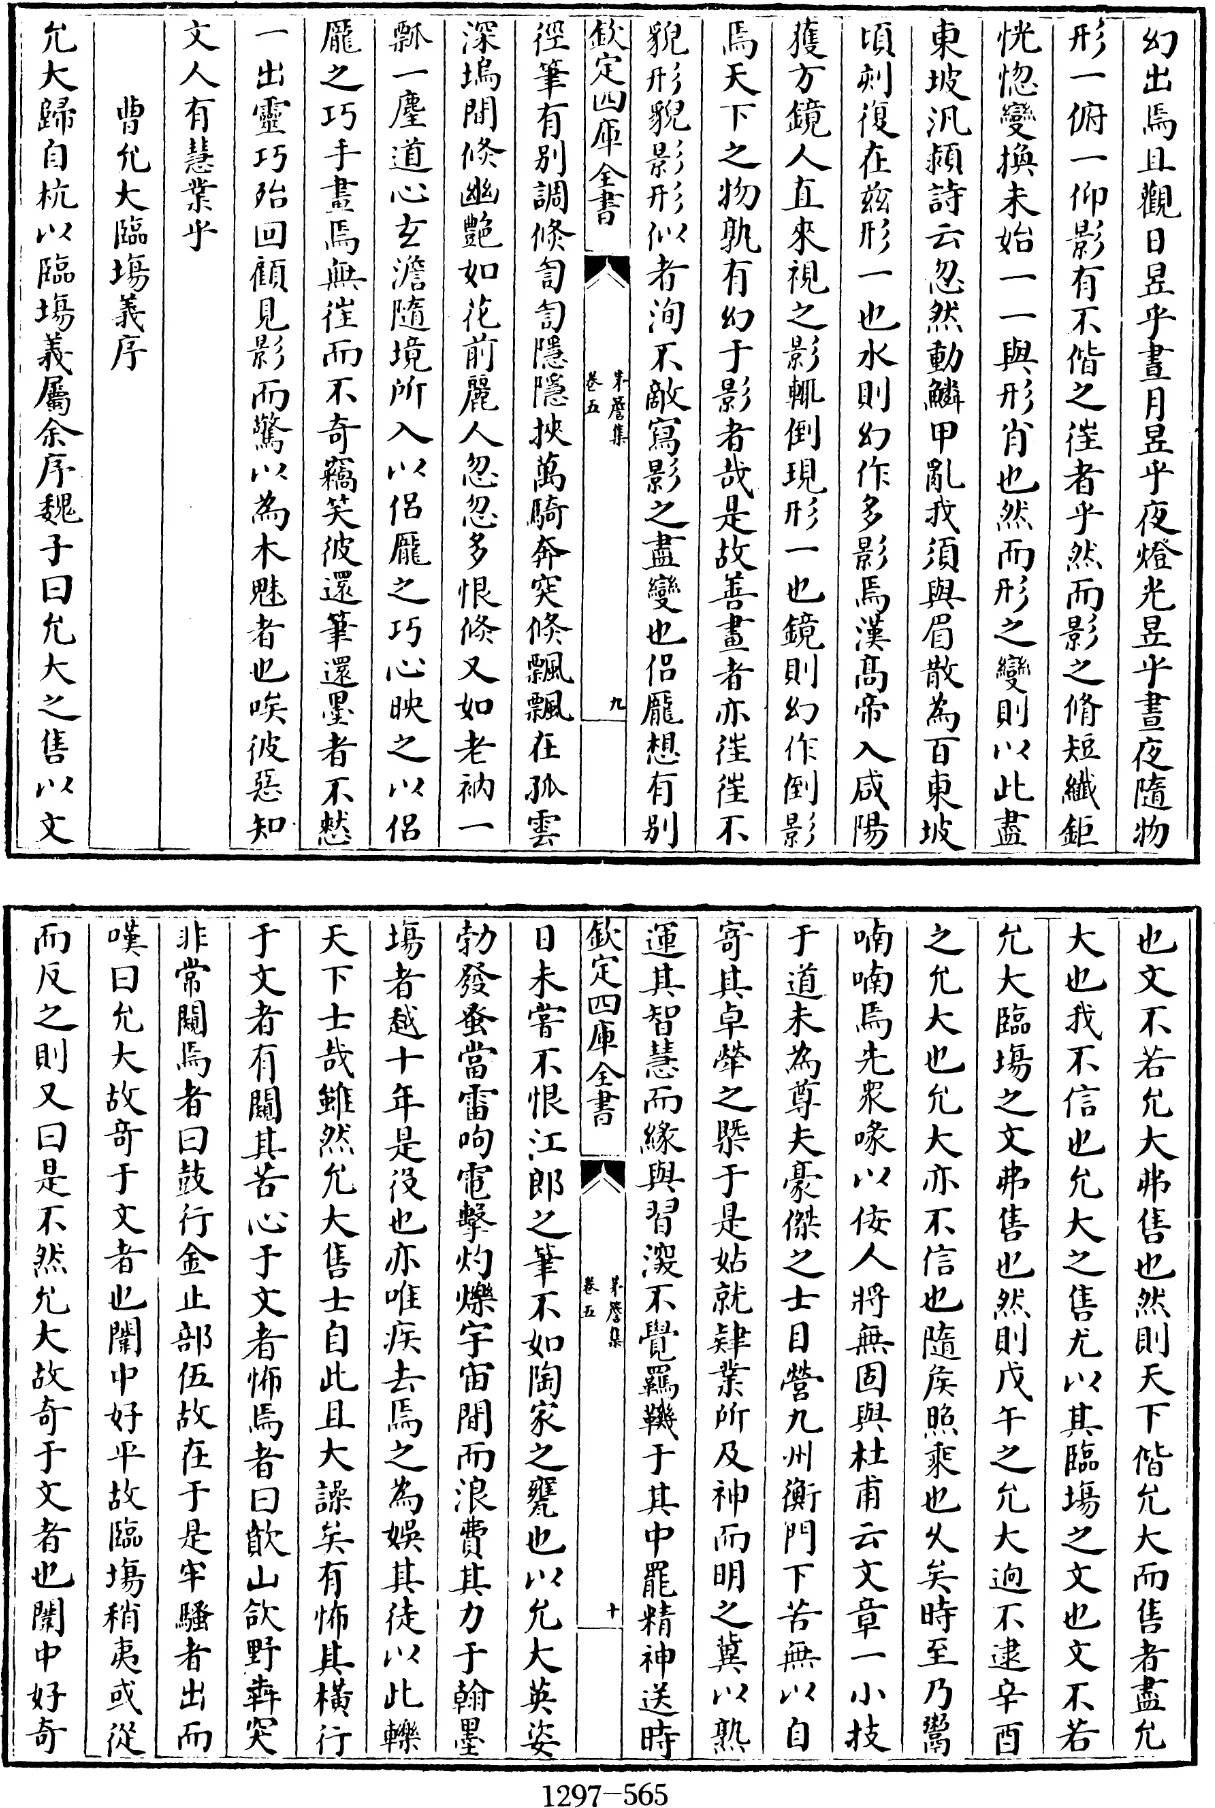 幻出焉且觀日昱乎晝月昱乎夜燈光昱乎晝夜隨物
形一俯一仰影有不偕之徃者乎然而影之脩短纖鉅
恍惚變換未始一一與形肖也然而形之變則以此盡
東坡汎潁詩云忽然動鱗甲亂我須與眉散為百東坡
頃刻復在兹形一也水則幻作多影焉漢髙帝入咸陽
獲方鏡人直來視之影輒倒現形一也鏡則幻作倒影
焉天下之物孰有幻于影者哉是故善畫者亦徃徃不
貌形貌影形似者洵不敵寫影之盡變也侣龎想有别
欽定四庫全書
茅簷集
卷五
九
徑筆有别調倐訇訇隱隱挾萬騎奔突倐飄飄在孤雲
深塢間倐幽艷如花前麗人忽忽多恨倐又如老衲一
瓢一麈道心玄澹隨境所入以侣龎之巧心映之以侣
龎之巧手畫焉無徃而不奇竊笑彼還筆還墨者不愁
一出靈巧殆回顧見影而驚以為木魅者也唉彼惡知
文人有慧業乎
曹允大臨塲義序
允大歸自杭以臨塲義屬余序魏子曰允大之售以文
也文不若允大弗售也然則天下偕允大而售者盡允
大也我不信也允大之售尤以其臨塲之文也文不若
允大臨塲之文弗售也然則戊午之允大逈不逮辛酉
之允大也允大亦不信也隨矦照乘也乆矣時至乃鬻
喃喃焉先衆喙以佞人將無固與杜甫云文章一小技
于道未為尊夫豪傑之士目營九州衡門下苦無以自
寄其卓犖之槩于是姑就肄業所及神而明之冀以熟
運其智慧而緣與習深不覺羈鞿于其中罷精神送時
欽定四庫全書
茅簷集
卷五
十
日未嘗不恨江郎之筆不如陶家之甕也以允大英姿
勃發蚤當雷呴電擊灼爍宇宙間而浪費其力于翰墨
塲者越十年是役也亦唯疾去焉之為娛其徒以此轢
天下士哉雖然允大售士自此且大譟矣有怖其橫行
于文者有鬭其苦心于文者怖焉者曰歕山欱野犇突
非常鬭焉者曰鼓行金止部伍故在于是牢騷者出而
嘆曰允大故竒于文者也闈中好平故臨塲稍夷或從
而反之則又曰是不然允大故奇于文者也闈中好奇
1297-565